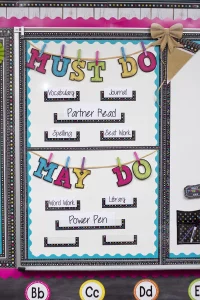 MUST DO
Vocabulary Journal
Partner Read
Spelling Seat Work
MAY DO
Word Work Library
Power Pen
Bb Cc Dd E